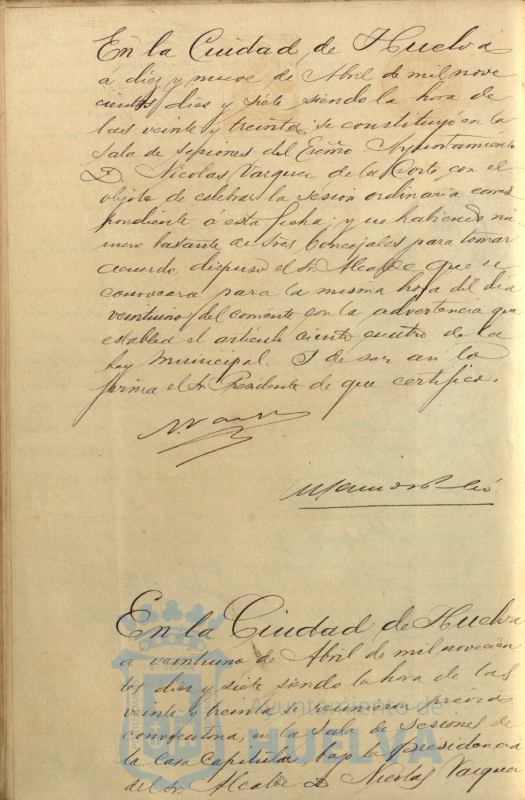 En la Ciudad de Huelva
a diez y nueve de Abril de mil nove
cientos diez y siete siendo la hora de
las veinte y treinta se constituyó en la
Sala de sesiones del Excmo Ayuntamiento
D. Nicolas Vazquez de la Corte con el
objeto de celebrar la sesion ordinaria corres
pondiente á esta fecha; y no habiendo nú
mero bastante de Sres Concejales para tomar
acuerdo dispuso el Sr Alcalde que se
convocara para la misma hora del dia
veintiuno del corriente con la advertencia que
establece el articulo ciento cuatro de la
Ley Municipal. Y de ser asi lo
firma el Sr Presidente de que certifico.
En la Ciudad de Huelva
a veintiuno de Abril de mil novecien
tos diez y siete siendo la hora de las
veinte y treinta se reunieron previa
convocatoria en la Sala de Sesiones de
la Casa Capitular bajo la presidencia
del Sr Alcalde D Nicolas Vazquez
Ayuntamiento de
HUELVA